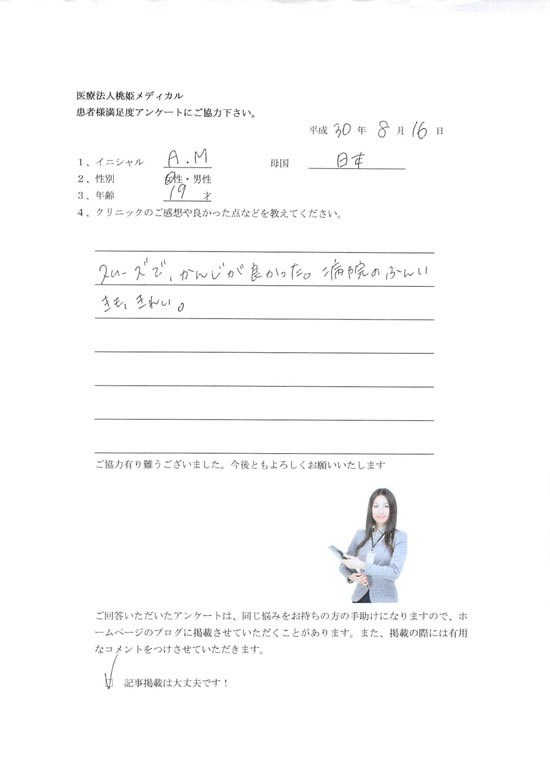 医療法人桃姫メディカル
患者様満足度アンケートにご協力下さい。
平成 30 年 8 月 16 日
1、イニシャル A.M 母国 日本
2、性別 女性・男性
3、年齢 19 才
4、クリニックのご感想や良かった点などを教えてください。
スムーズで、かんじが良かった。病院のふんい
きも、きれい。
ご協力有り難うございました。今後ともよろしくお願いいたします
ご回答いただいたアンケートは、同じ悩みをお持ちの方の手助けになりますので、ホ
ームページのブログに掲載させていただくことがあります。また、掲載の際には有用
なコメントをつけさせていただきます。
□ 記事掲載は大丈夫です！